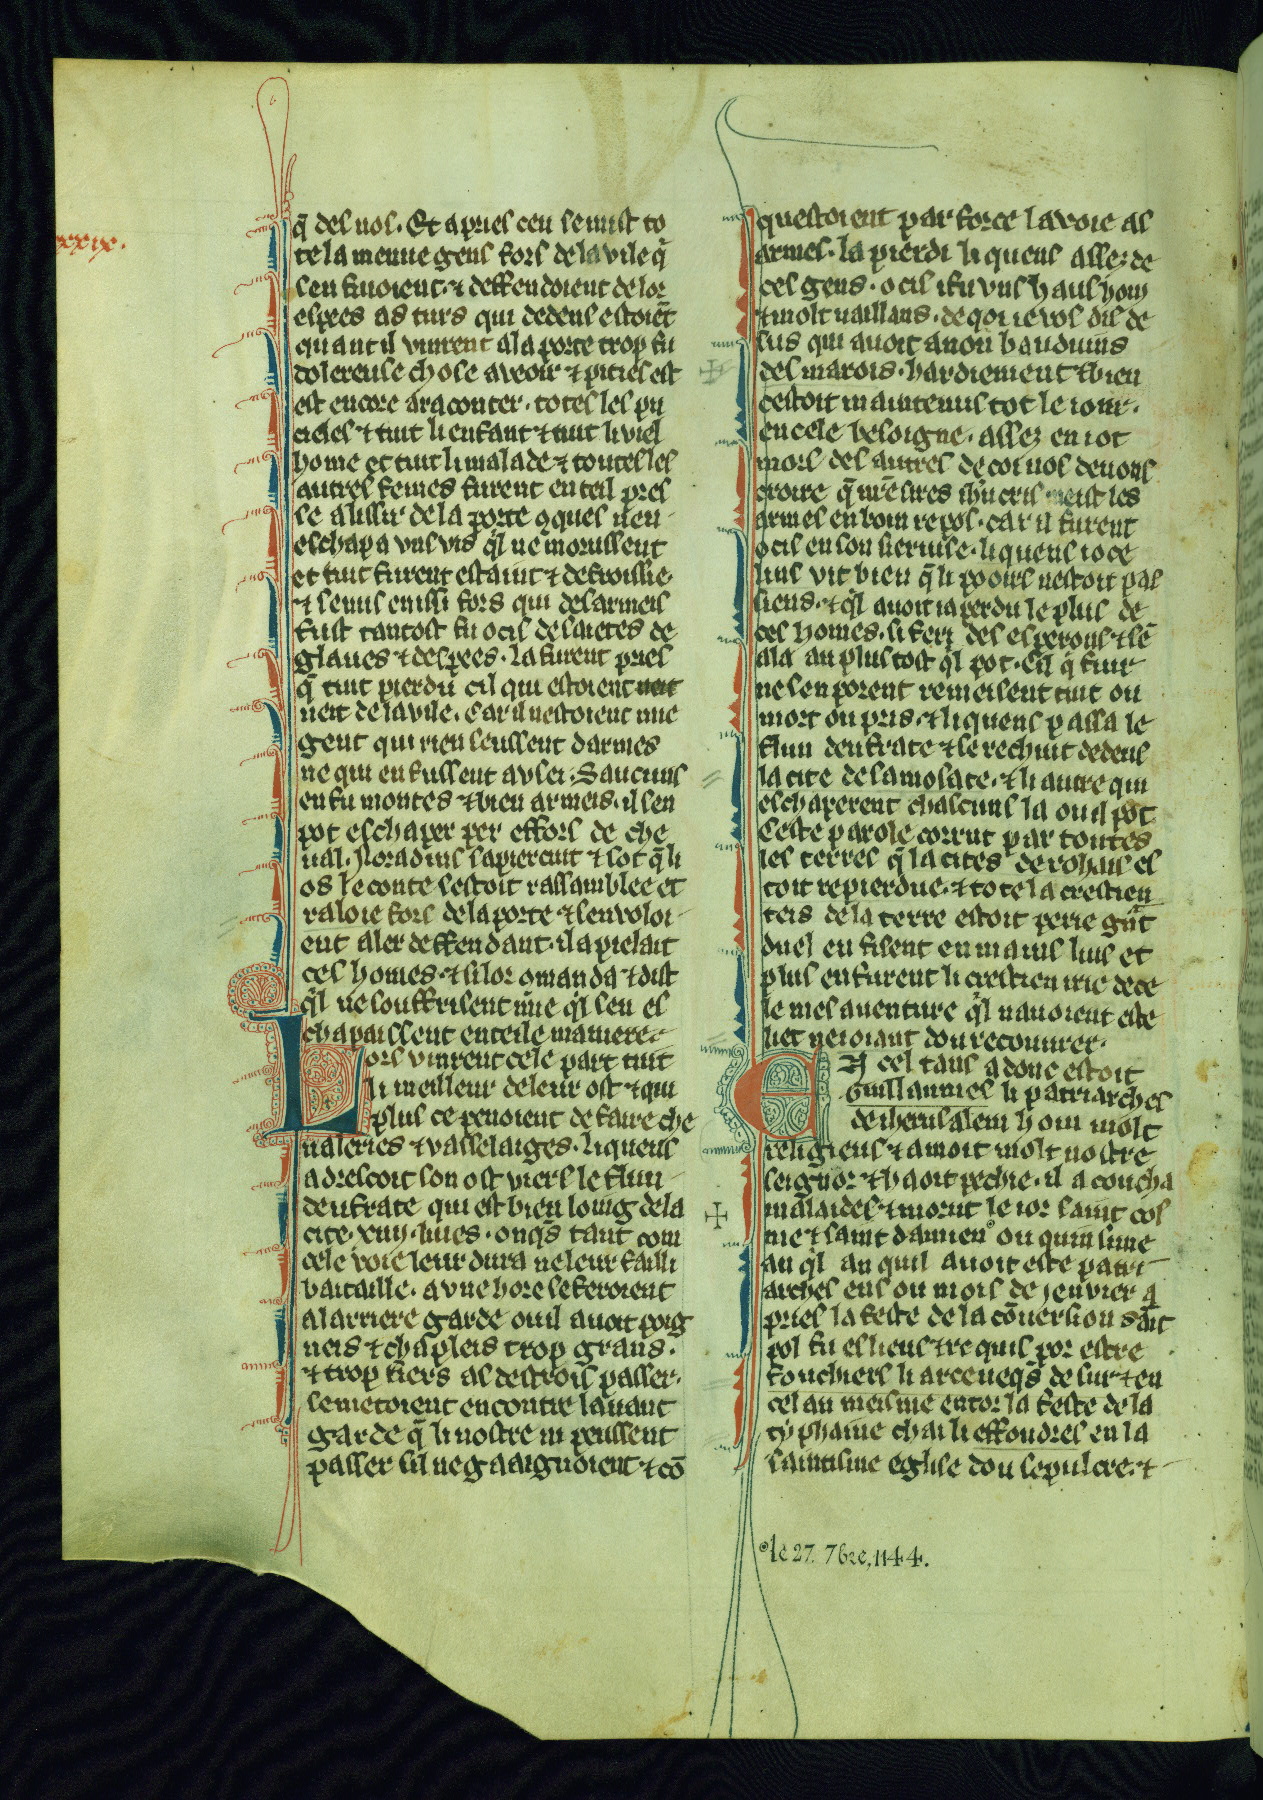 xxxix.
q̄ del uos. Et apries ceu se mist to
te la menue gens fors de la vile q̄
sen fuioient. ⁊ deffendoient de lor
espees as turs qui dedens estoiēt
quant il vinrent a la porte trop fu
dolereuse chose a veoir ⁊ pities est
est encore a raconter. totes les pu
cieles ⁊ tuit li enfant ⁊ tuit li viel
home et tuit li malade ⁊ toutes les
autres femes furent en teil pres
se a lissir de la porte
eschapa vns vis ql ne morussent
et tuit furent estaint ⁊ defroissie.
⁊ se nus en issi fors qui desarmeis
fust tantost fu ocis de saietes de
glaues ⁊ despees. la furent pries
q̄ tuit pierdu cil qui estoient
ueit de la vile. Car il nestoient mie
gent qui rien seussent darmes
ne qui en fussent a vsei. Saucuns
en fu montes ⁊ bien armeis. il sen
pot eschaper per effors de che
ual. Noradins sapiercut ⁊ sot q̄ li
os le conte sestoit rassamblee et
raloie fors de la porte ⁊ sen voloi
ent aler deffendant. il apielait
ces homes. ⁊ si lor 9manda ⁊ dist
ql ne souffrisent mie ql sen es
chapaissent en teile maniere.
Lors vinrent cele part tuit
li meilleur de leur ost ⁊ qui
plus ce penoient de faire che
ualeries ⁊ vasselaiges. li quens
adrescoit son ost viers le flun
deufrate qui est bien loing de la
cite. xiiij. liues. onqs tant com
cele voie leur dura ne leur failli
bataille. a vne hore se feroient
a larriere garde ou il auoit poig
neis ⁊ chapleis trop grans.
⁊ trop fiers as destrois passer.
se metoient encontre lauant
garde q̄ li nostre ni peussent
passer sil ne gaaignoient ⁊ cō
questoient par force la voie as
armes. la pierdi li quens assez de
ces gens. ocis i fu vns haus hom
⁊ molt uaillans. de qoi ie vos dis de
sus qui auoit a non bauduins
des marois. hardiement ⁊ bien
cestoit maintenus tot le iour.
en cele besoigne. assez en i ot
mors des autres de coi nos deuons
croire q̄ nrē sires ihūcris meist les
armes en boin repos. car il furent
ocis en son seruise. li quens ioce
lins vit bien q̄ li pooirs nestoit pas
siens. ⁊ ql auoit ia perdu le plus de
ces homes. si feri des esperons ⁊ sē
ala au plus tost ql pot. Cil q̄ fuir
ne sen porent remeisent tuit ou
mort ou pris. ⁊ li quens passa le
flun deufrate ⁊ se rechuit dedens
la cite de samosate. ⁊ li autre qui
eschaperent chascuns la ou il pot
Ceste parole corrut par toutes
les terres q̄ la cites de rohais es
toit repierdue. ⁊ tote la crestien
teis de la terre estoit perie grāt
duel en fisent en mains lius et
plus en furent li crestien irie de ce
le mesauenture ql nauoient este
liet ne ioiant dou recourer.
En cel tans adonc estoit
Guillaumes li patriarches
de iherusalem hom molt
religieus ⁊ amoit molt nostre
seignor ⁊ haoit pechie. il a coucha
malaides ⁊ morut le ior saint cos
me ⁊ saint damien° ou quinsime
an ql an quil auoit este patri
arches ens ou mois de jenvier a
pries la feste de la cōuersion sāit
pol fu eslieus ⁊ requis por estre
fouchiers li arceueqs de sur ⁊ en
cel an meisme entor la feste de la
typhaine chai li effoudres en la
saintisme eglise dou sepulcre. ⁊
°le 27. 7bre, 1144.